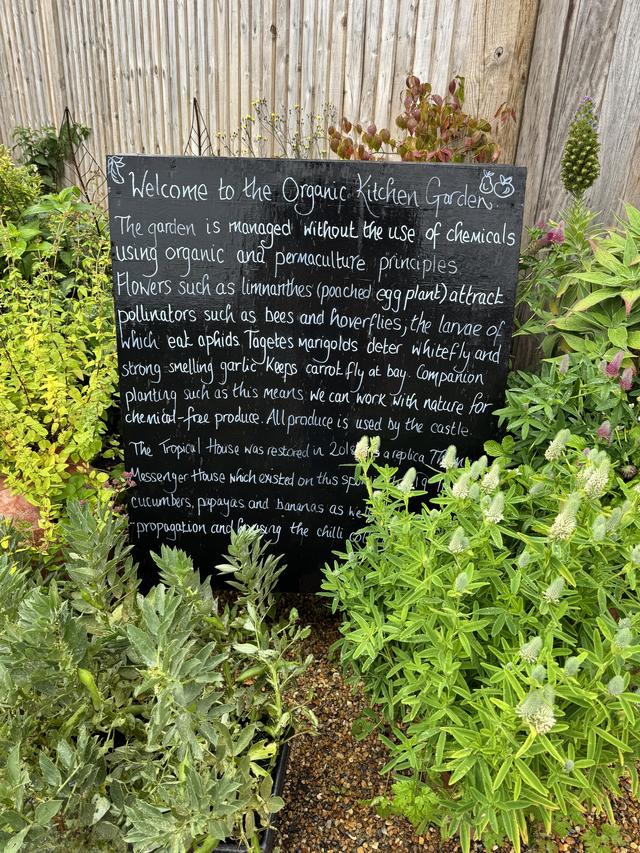 Welcome to the Organic Kitchen Garden.
The garden is managed without the use of chemicals
using organic and permaculture principles
Flowers such as limnanthes (poached egg plant) attract
pollinators such as bees and hoverflies, the larvae of
which eat aphids. Tagetes marigolds deter whitefly and
strong smelling garlic Keeps carrot fly at bay. Companion
planting such as this means we can work with nature for
chemical-free produce. All produce is used by the castle.
The Tropical House was restored in a replica
Messenger House which existed on this
cucumbers, papayas and bananas as
propagation and housing the chilli